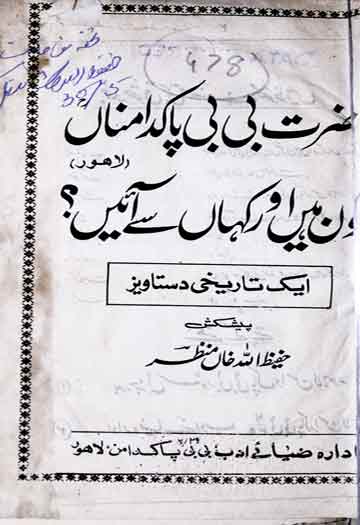 478
حضرت بی بی پاکدامناں
(لاہور)
کون ہیں اور کہاں سے آئیں؟
ایک تاریخی دستاویز
پیشکش
حفیظ اللہ خان منظر
ادارہ ضیائے ادب بی بی پاکدامن لاہور